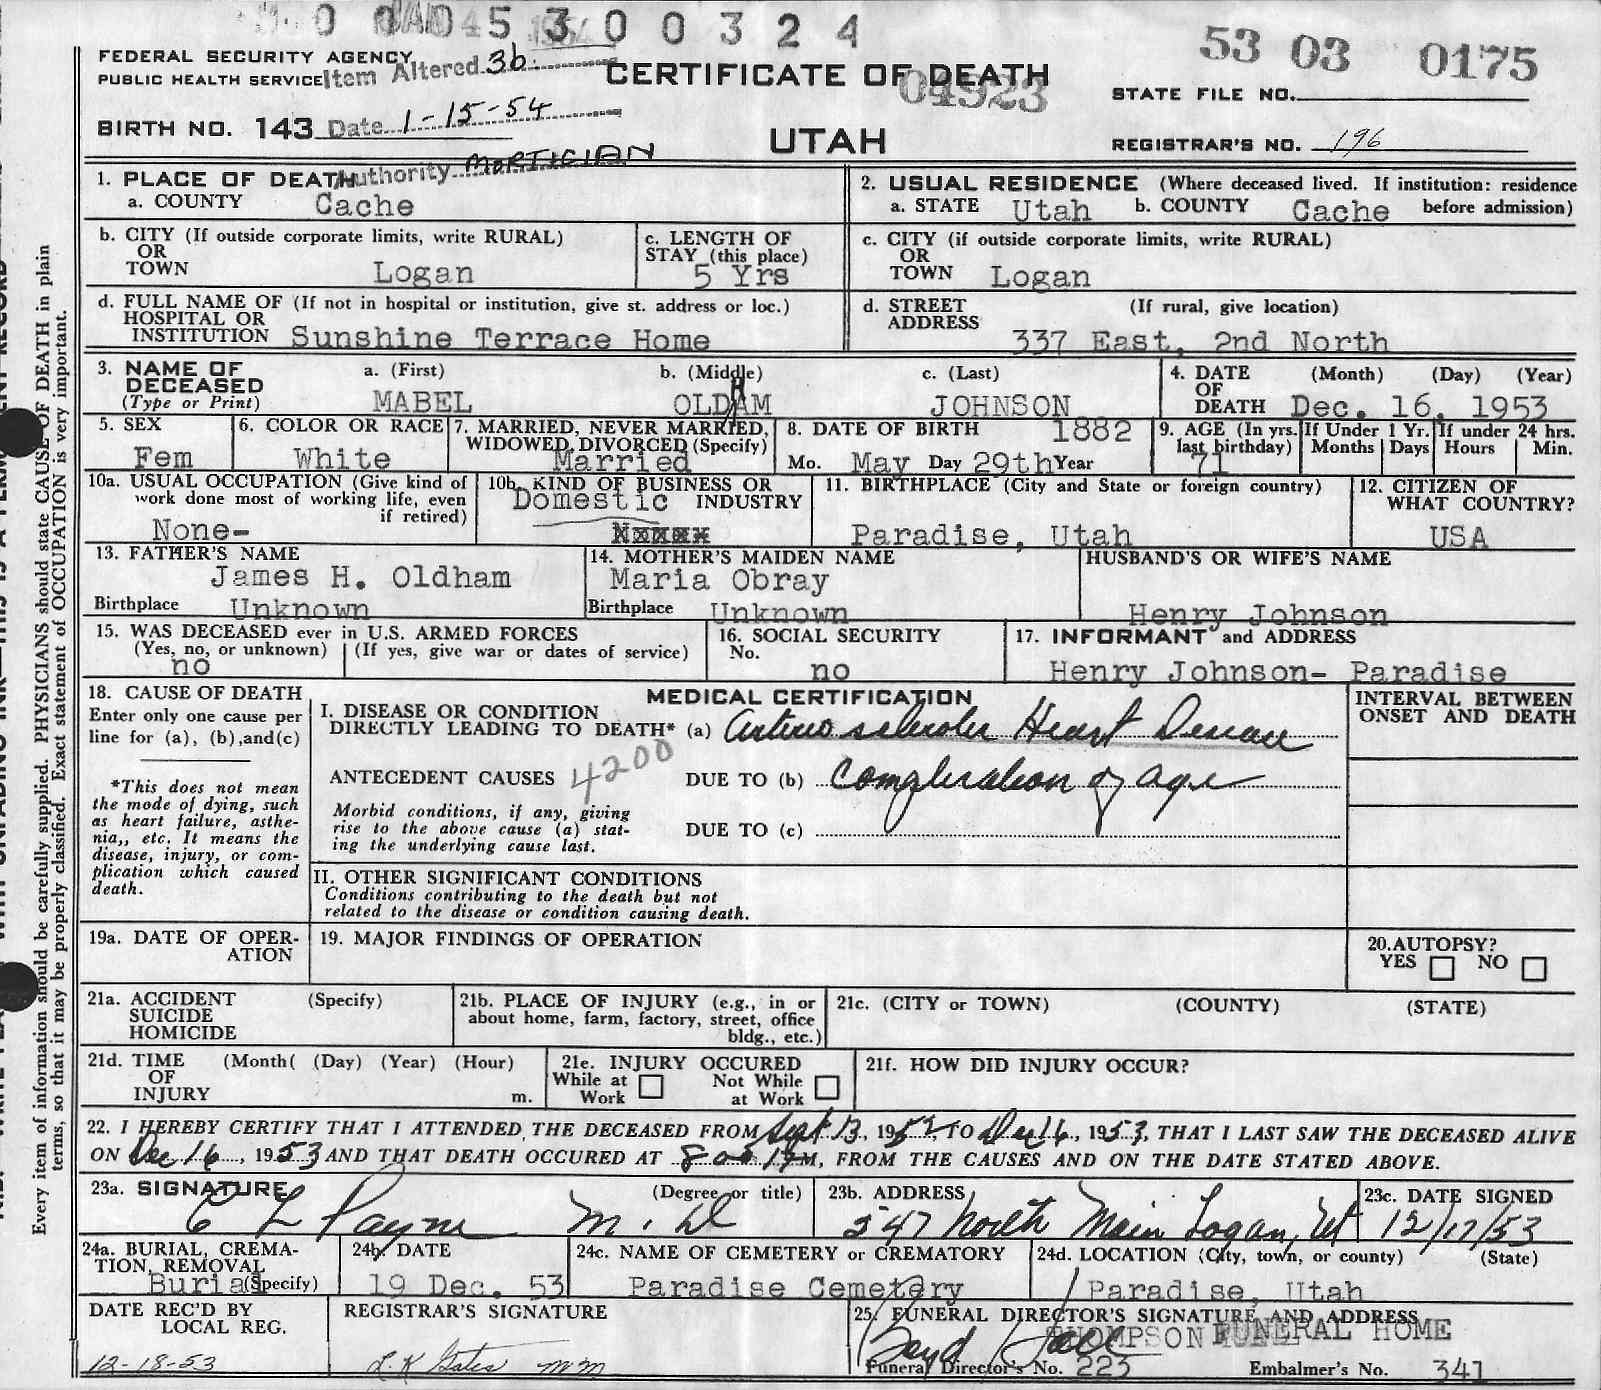 0 0 0 4 5 3 0 0 3 2 4
53 03 0175
FEDERAL SECURITY AGENCY
PUBLIC HEALTH SERVICE
Item Altered 3b.
CERTIFICATE OF DEATH
04923
STATE FILE NO.
BIRTH NO. 143
Date 1-15-54
UTAH
REGISTRAR'S NO. 196
Authority MORTICIAN
1. PLACE OF DEATH
a. COUNTY Cache
2. USUAL RESIDENCE (Where deceased lived. If institution: residence before admission)
a. STATE Utah b. COUNTY Cache
b. CITY (If outside corporate limits, write RURAL)
OR
TOWN Logan
c. LENGTH OF
STAY (this place)
5 Yrs
c. CITY (if outside corporate limits, write RURAL)
OR
TOWN Logan
d. FULL NAME OF (If not in hospital or institution, give st. address or loc.)
HOSPITAL OR
INSTITUTION Sunshine Terrace Home
d. STREET (If rural, give location)
ADDRESS 337 East, 2nd North
3. NAME OF
DECEASED
(Type or Print)
a. (First) b. (Middle) c. (Last)
MABEL OLDHAM JOHNSON
4. DATE (Month) (Day) (Year)
OF
DEATH Dec. 16, 1953
5. SEX
Fem
6. COLOR OR RACE
White
7. MARRIED, NEVER MARRIED,
WIDOWED, DIVORCED (Specify)
Married
8. DATE OF BIRTH 1882
Mo. May Day 29th Year
9. AGE (In yrs. last birthday)
71
If Under 1 Yr.
Months Days
If under 24 hrs.
Hours Min.
10a. USUAL OCCUPATION (Give kind of
work done most of working life, even
if retired)
None-
10b. KIND OF BUSINESS OR
Domestic INDUSTRY
11. BIRTHPLACE (City and State or foreign country)
Paradise, Utah
12. CITIZEN OF
WHAT COUNTRY?
USA
13. FATHER'S NAME
James H. Oldham
Birthplace Unknown
14. MOTHER'S MAIDEN NAME
Maria Obray
Birthplace Unknown
HUSBAND'S OR WIFE'S NAME
Henry Johnson
15. WAS DECEASED ever in U.S. ARMED FORCES
(Yes, no, or unknown) (If yes, give war or dates of service)
no
16. SOCIAL SECURITY
No.
no
17. INFORMANT and ADDRESS
Henry Johnson- Paradise
18. CAUSE OF DEATH
Enter only one cause per
line for (a), (b),and(c)
*This does not mean
the mode of dying, such
as heart failure, asthe-
nia,, etc. It means the
disease, injury, or com-
plication which caused
death.
MEDICAL CERTIFICATION
I. DISEASE OR CONDITION
DIRECTLY LEADING TO DEATH* (a) Arterio sclerotic Heart Disease
4200
ANTECEDENT CAUSES DUE TO (b) Complication of age
Morbid conditions, if any, giving
rise to the above cause (a) stat-
ing the underlying cause last.
DUE TO (c)
INTERVAL BETWEEN
ONSET AND DEATH
II. OTHER SIGNIFICANT CONDITIONS
Conditions contributing to the death but not
related to the disease or condition causing death.
19a. DATE OF OPER-
ATION
19. MAJOR FINDINGS OF OPERATION
20. AUTOPSY?
YES NO
21a. ACCIDENT (Specify)
SUICIDE
HOMICIDE
21b. PLACE OF INJURY (e.g., in or
about home, farm, factory, street, office
bldg., etc.)
21c. (CITY or TOWN) (COUNTY) (STATE)
21d. TIME (Month( (Day) (Year) (Hour)
OF
INJURY m.
21e. INJURY OCCURED
While at Work Not While at Work
21f. HOW DID INJURY OCCUR?
22. I HEREBY CERTIFY THAT I ATTENDED THE DECEASED FROM Sept 13, 1952, TO Dec 16, 1953, THAT I LAST SAW THE DECEASED ALIVE
ON Dec 16, 1953 AND THAT DEATH OCCURED AT 8 M, FROM THE CAUSES AND ON THE DATE STATED ABOVE.
23a. SIGNATURE (Degree or title)
C L Payne M.D
23b. ADDRESS
547 North Main Logan, Ut
23c. DATE SIGNED
12/17/53
24a. BURIAL, CREMA-
TION, REMOVAL
Burial (Specify)
24b. DATE
19 Dec. 53
24c. NAME OF CEMETERY or CREMATORY
Paradise Cemetery
24d. LOCATION (City, town, or county) (State)
Paradise, Utah
DATE REC'D BY
LOCAL REG.
12-18-53
REGISTRAR'S SIGNATURE
L.K Gates MM
25. FUNERAL DIRECTOR'S SIGNATURE AND ADDRESS
Boyd Hall
THOMPSON FUNERAL HOME
Funeral Director's No. 223 Embalmer's No. 341
Every item of information should be carefully supplied. PHYSICIANS should state CAUSE OF DEATH in plain
terms, so that it may be properly classified. Exact statement of OCCUPATION is very important.